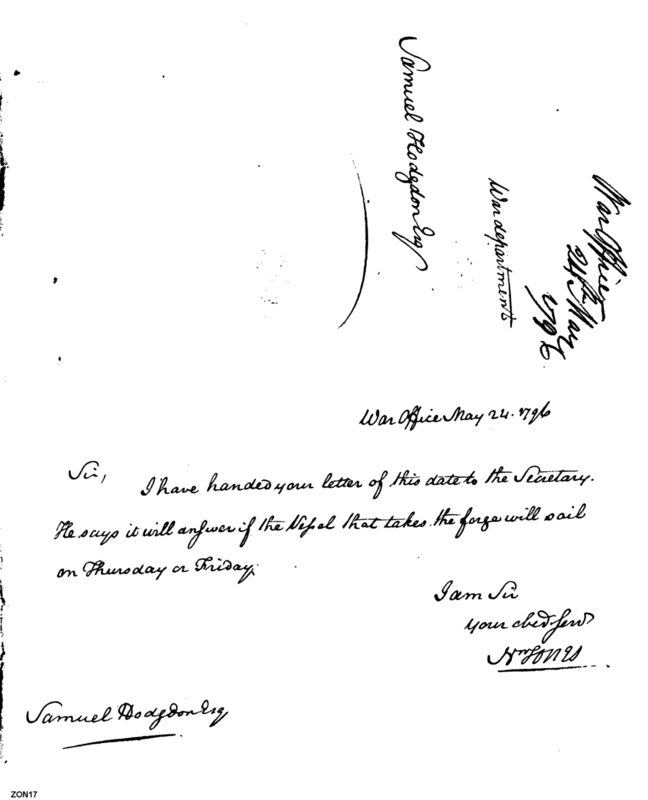 Samuel Hodgdon Esq
War department
War Office
24th May
1796
War Office May 24. 1796
Sir,
I have handed your letter of this date to the Secretary.
He says it will anſwer if the Veſsel that takes the forge will sail
on Thursday or Friday.
I am Sir
your obed Servt
Jones
Samuel Hodgdon Esq
ZON17